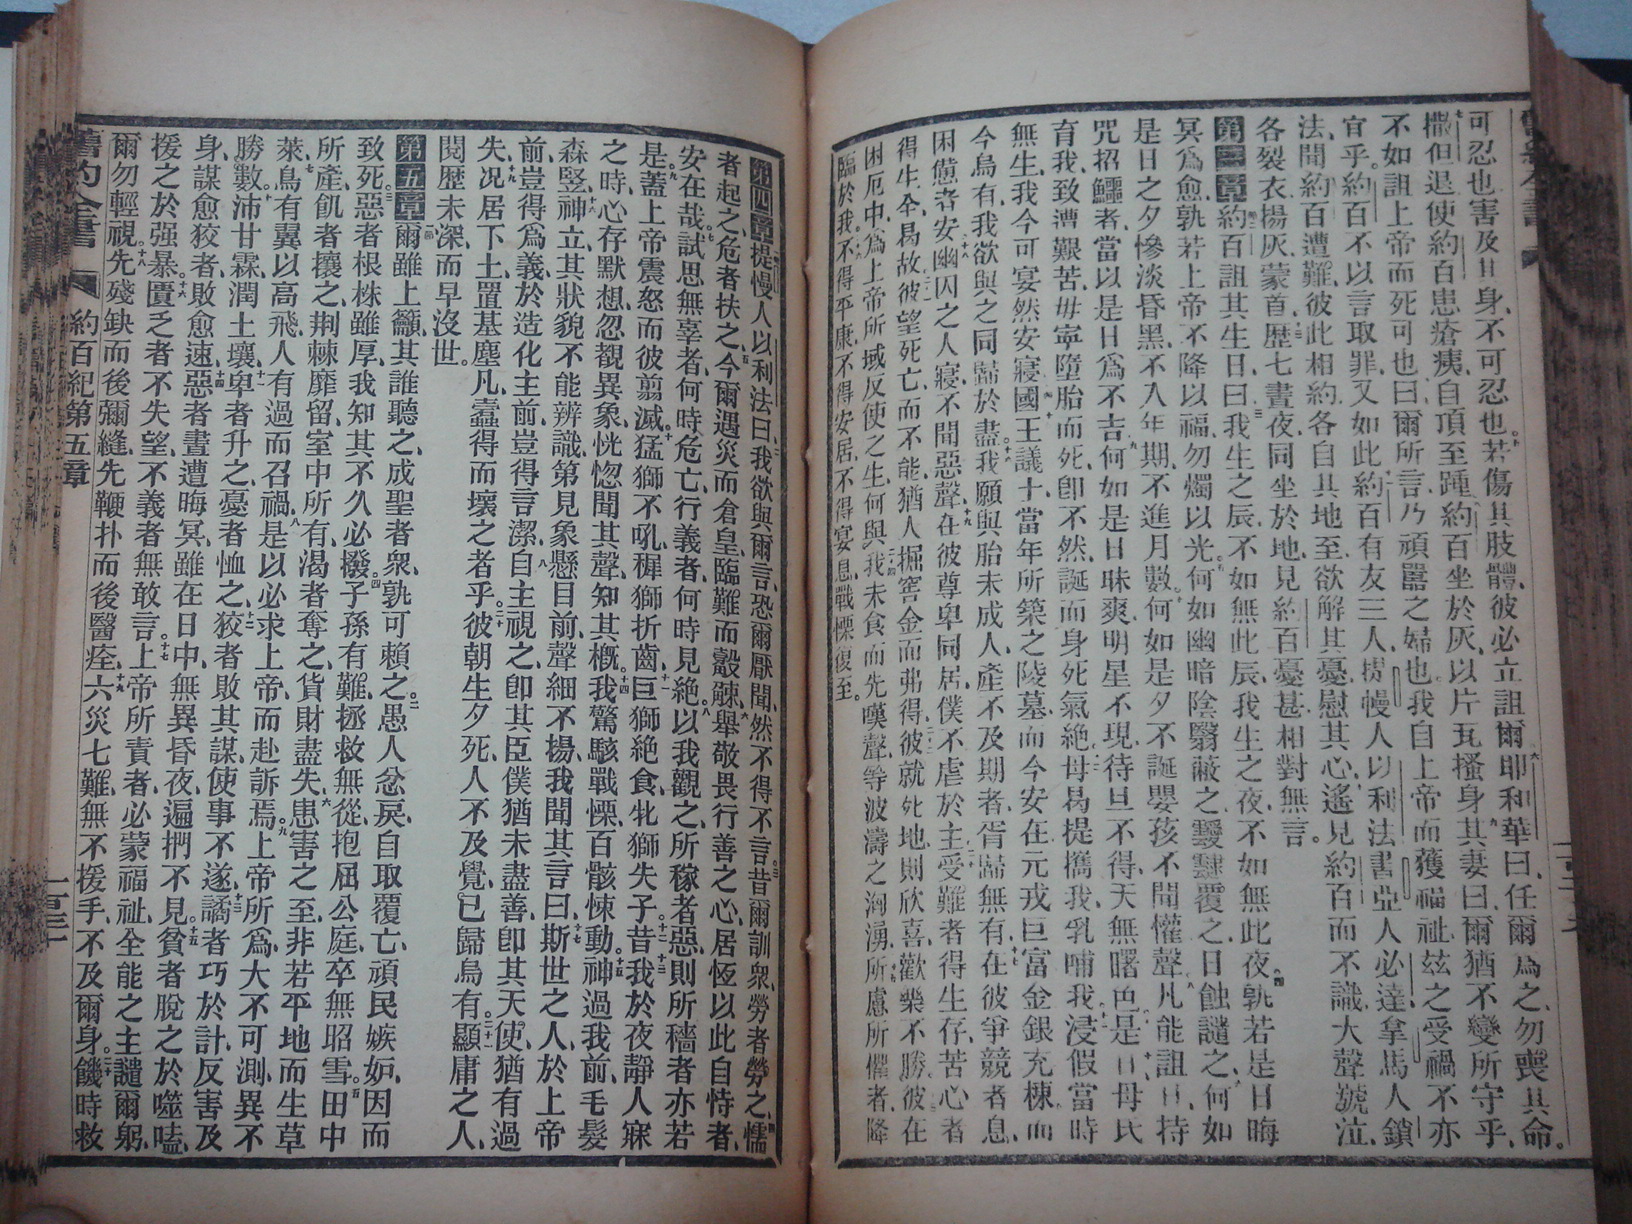 可忍也害及其身不可忍也若傷其肢體彼必立詛爾耶和華曰任爾爲之勿喪其命
撒但退使約百患瘡痍自頂至踵約百坐於灰以片瓦搔身其妻曰爾猶不變所守乎
不如詛上帝而死可也曰爾所言乃頑嚚之婦也我自上帝而獲福祉玆之受禍不亦
宜乎約百不以言取罪又如此約百有友三人提慢人以利法書亞人必達拿馬人鎖
法聞約百遭難彼此相約各自其地至欲解其憂慰其心遙見約百而不識大聲號泣
各裂衣揚灰蒙首歷七晝夜同坐於地見約百憂甚相對無言
第三章約百詛其生日曰我生之辰不如無此辰我生之夜不如無此夜孰若是日晦
冥爲愈孰若上帝不降以福勿燭以光何如幽暗陰翳蔽之靉靆覆之日蝕譴之何如
是日之夕慘淡昏黑不入年期不進月數何如是夕不誕嬰孩不聞懽聲凡能詛日持
咒招鱷者當以是日爲不吉何如是日昧爽明星不現待旦不得天無曙色是日母氏
育我致遭艱苦毋寧墮胎而死卽不然誕而身死氣絕母曷提攜我乳哺我浸假當時
無生我今可宴然安寢國王議士當年所築之陵墓而今安在元戎巨富金銀充棟而
今烏有我欲與之同歸於盡我願與胎未成人產不及期者胥歸無有在彼爭競者息
困憊者安幽囚之人寢不聞惡聲在彼尊卑同居僕不虐於主受難者得生存苦心者
得生全曷故彼望死亡而不能猶人掘窖金而弗得彼就死地則欣喜歡樂不勝彼在
困厄中爲上帝所域反使之生何與我未食而先嘆聲等波濤之洶湧所慮所懼者降
臨於我不得平康不得安居不得宴息戰慄復至
第四章提慢人以利法曰我欲與爾言恐爾厭聞然不得不言昔爾訓衆勞者勞之懦
者起之危者扶之今爾遇災而倉皇臨難而觳觫舉敬畏行善之心居恆以此自恃者
安在哉試思無辜者何時危亡行義者何時見絕以我觀之所稼者惡則所穡者亦若
是蓋上帝震怒而彼翦滅猛獅不吼穉獅折齒巨獅絕食牝獅失子昔我於夜靜人寐
之時心存默想忽覩異象恍惚聞其聲知其概我驚駭戰慄百骸悚動神過我前毛髮
森竪神立其狀貌不能辨識第見象懸目前聲細不揚我聞其言曰斯世之人於上帝
前豈得爲義於造化主前豈得言潔自主視之卽其臣僕猶未盡善卽其天使猶有過
失况居下土置基塵凡蠹得而壞之者乎彼朝生夕死人不及覺已歸烏有顯庸之人
閱歷未深而早沒世
第五章爾雖上籲其誰聽之成聖者衆孰可賴之愚人忿戾自取覆亡頑民嫉妬因而
致死惡者根株雖厚我知其不久必撥子孫有難拯救無從抱屈公庭卒無昭雪田中
所產飢者攘之荆棘靡留室中所有渴者奪之貨財盡失患害之至非若平地而生草
萊鳥有翼以高飛人有過而召禍是以必求上帝而赴訴焉上帝所爲大不可測異不
勝數沛甘霖潤土壤卑者升之憂者恤之狡者敗其謀使事不遂譎者巧於計反害及
身謀愈狡者敗愈速惡者晝遭晦冥雖在日中無異昏夜遍捫不見貧者脫之於噬嗑
援之於强暴匱乏者不失望不義者無敢言上帝所責者必蒙福祉全能之主譴爾躬
爾勿輕視先殘缺而後彌縫先鞭扑而後醫痊六災七難無不援手不及爾身饑時救
舊約全書 約百紀第五章 一百三十